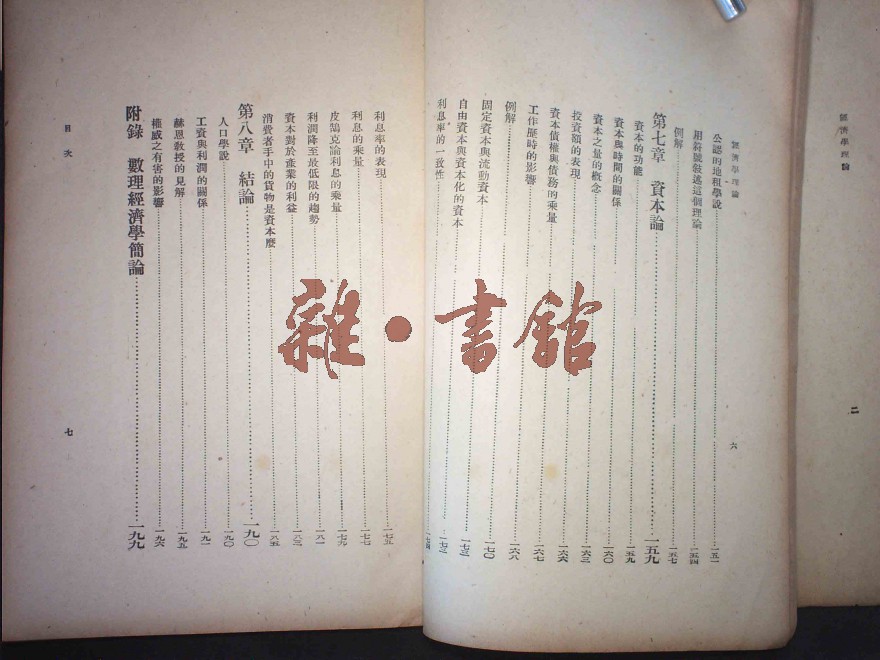 經濟學理論
二
經濟學理論
六
公認的地租學說 一五一
用符號敍述這個理論 一五四
例解 一五七
第七章 資本論 一五九
資本的功能 一五九
資本與時間的關係 一六〇
資本之量的概念 一六三
投資額的表現 一六四
資本債權與債務的乘量 一六六
工作歷時的影響 一六七
例解 一六八
固定資本與流動資本 一七〇
自由資本與資本化的資本 一七二
利息率的一致性
利息率的表現 一七五
利息的乘量 一七七
皮鵠克論利息的乘量 一七九
利潤降至最低限的趨勢 一八一
資本對於產業的利益 一八三
消費者手中的貨物是資本麼 一八五
第八章 結論 一九〇
人口學說 一九〇
工資與利潤的關係 一九一
赫恩教授的見解 一九五
權威之有害的影響 一九六
附錄 數理經濟學簡論 一九九
目次
七
雜·書館